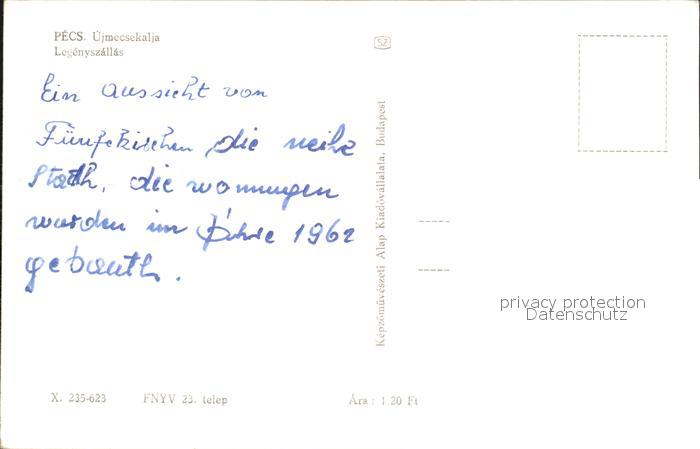 PÉCS. Újmecsekalja
Legényszállás
SZ
Ein aussicht von
Fünfekirchen die neihe
Stath. die wonnungen
wurden im Jahre 1962
gebauth.
Képzőművészeti Alap Kiadóvállalata, Budapest
privacy protection
Datenschutz
X. 235-623 FNYV 23. telep Ára : 1.20 Ft